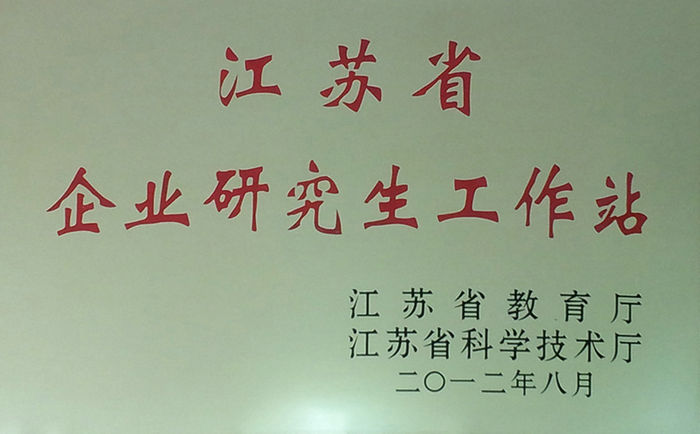 江苏省
企业研究生工作站
江苏省教育厅
江苏省科学技术厅
二〇一二年八月